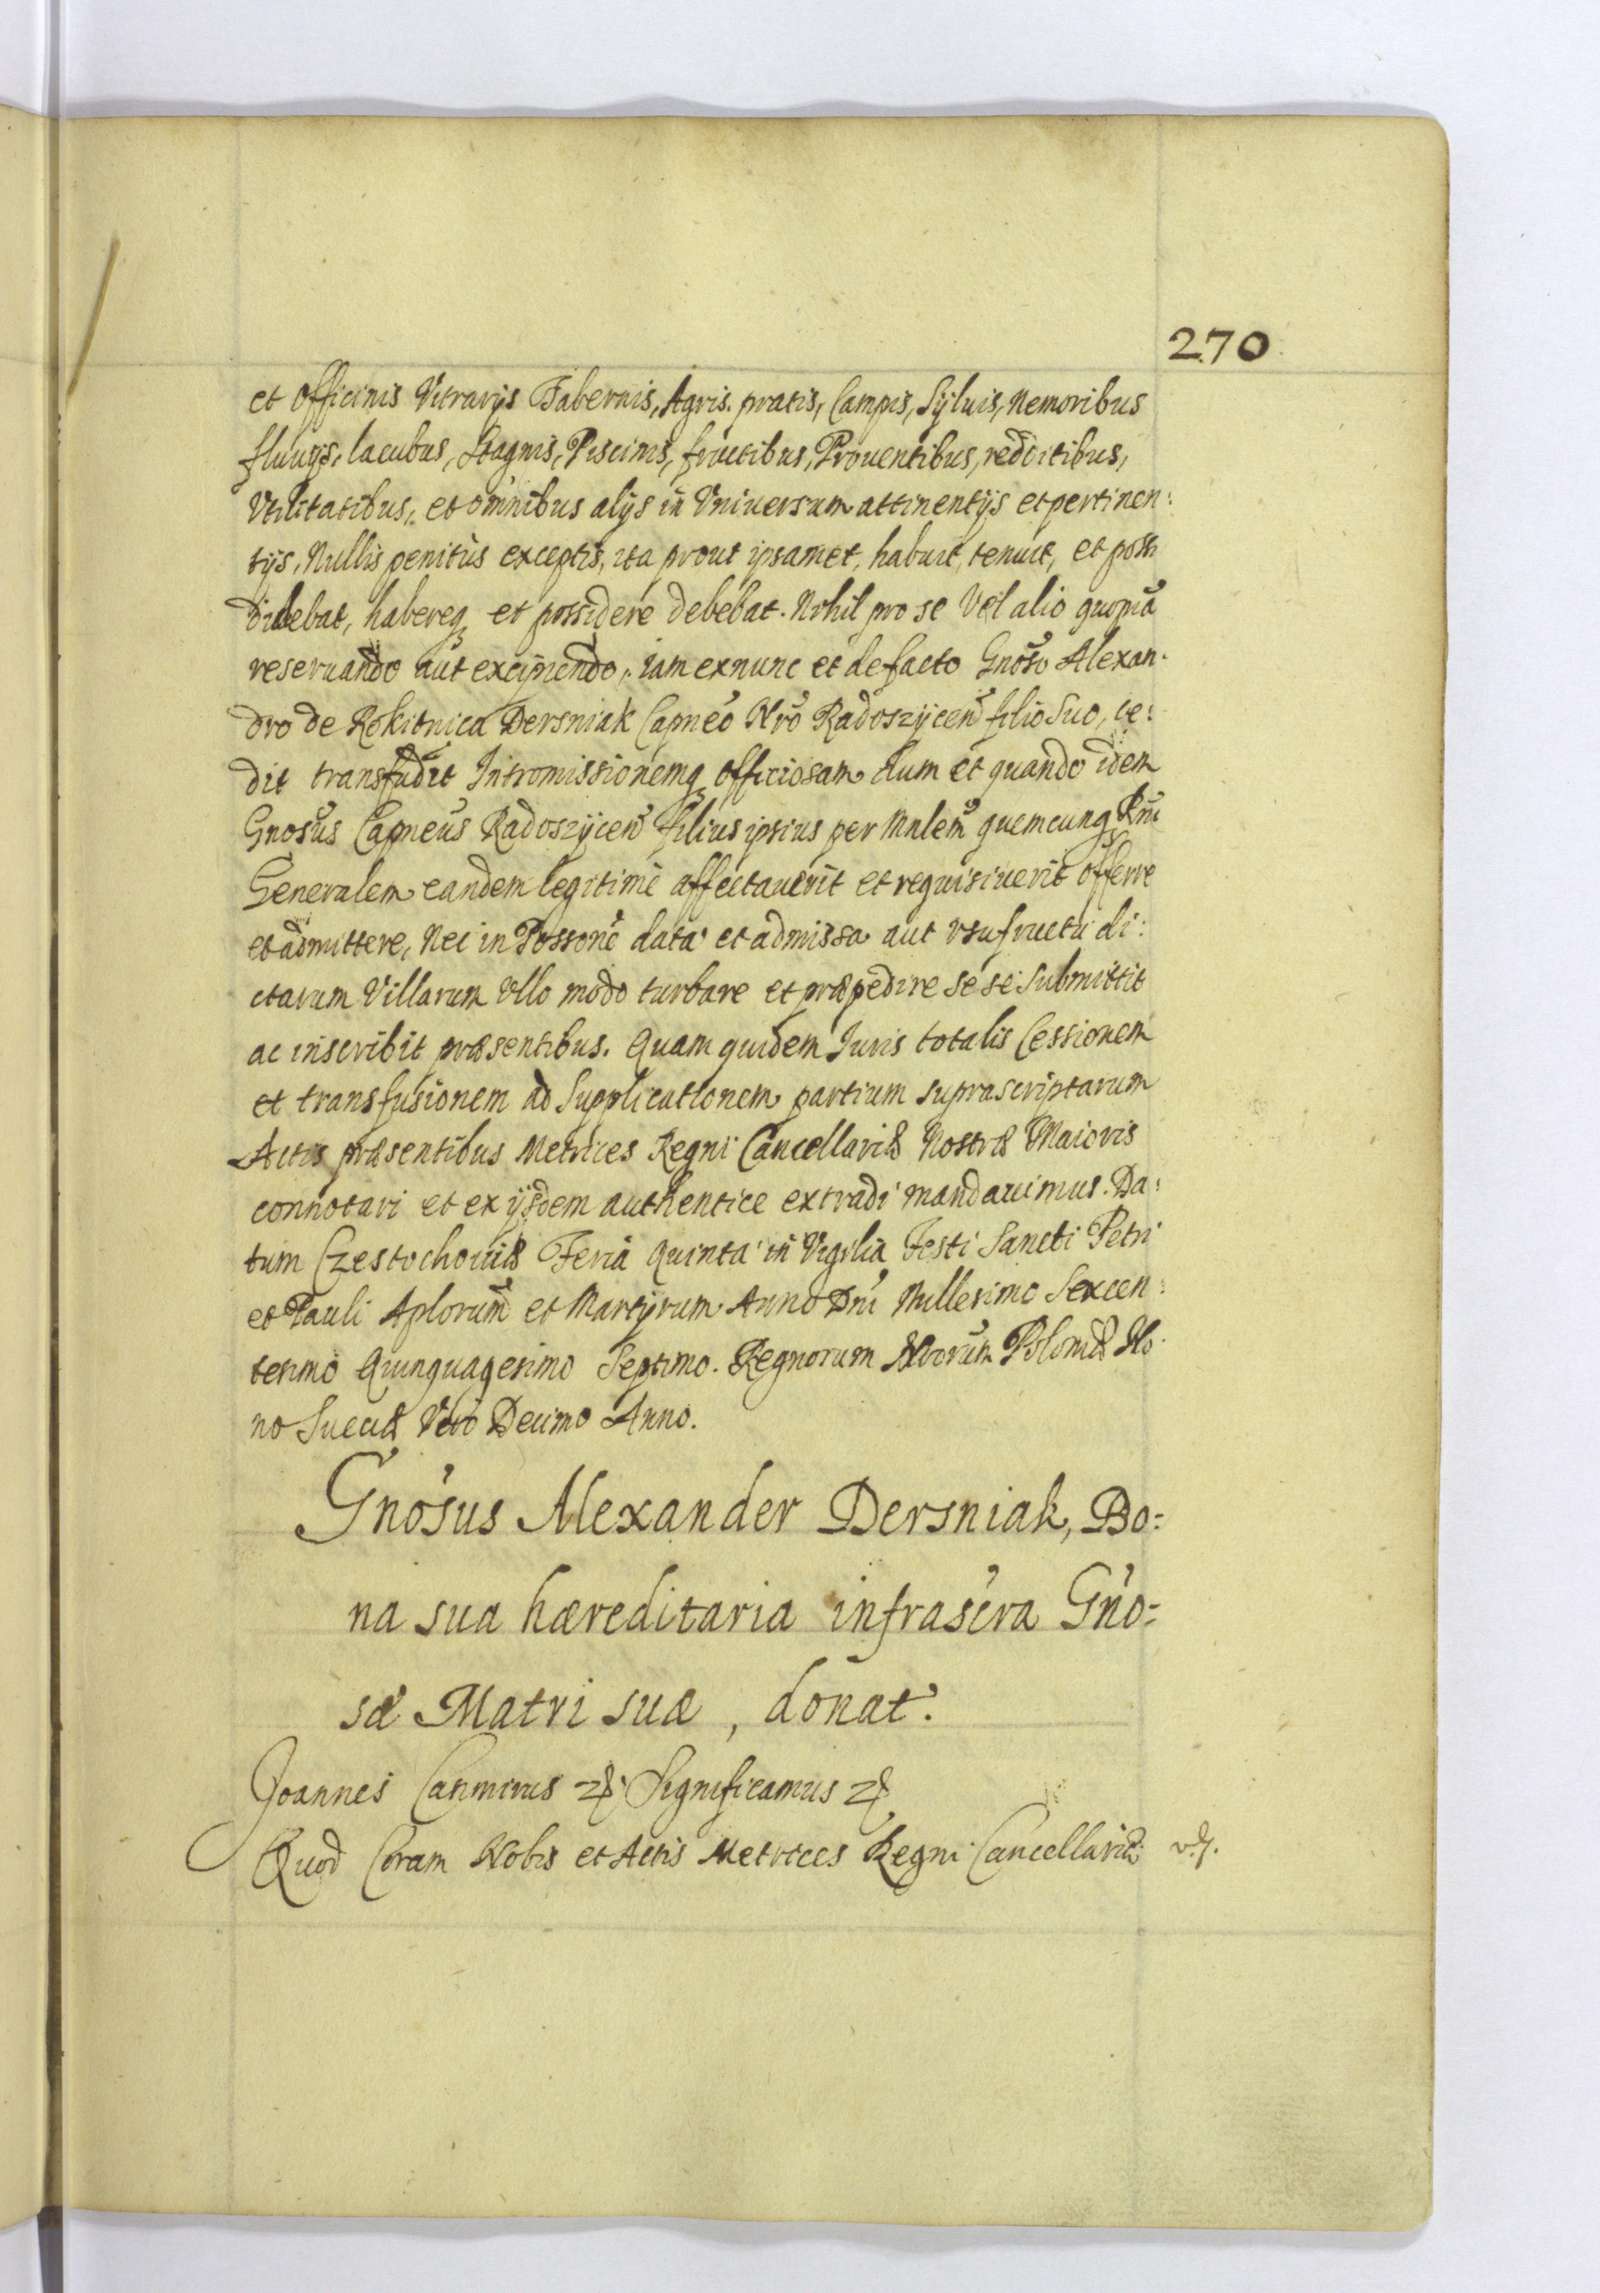 270
et Officinis Vitrarijs Tabernis, Agris. pratis, Campis, Syluis, Nemoribus
fluuijs, lacubus, Stagnis, Piscinis, fructibus, Prouentibus, redditibus,
Vtilitatibus, et omnibus alijs in Vniuersum attinentijs et pertinen:
tijs, Nullis penitùs exceptis, ita prout ipsamet, habuit, tenuit, et possi
debat, habereq et possidere debebat. Nihil pro se Vel alio quopiã
reseruando aut excipiendo, iam exnunc et defacto Gnoso Alexan-
dro de Rokitnica Dersniak Capneo Nro Radoszycen filio Suo, ce:
dit transfudit Intromissionemq officiosam dum et quando idem
Gnosus Capneus Radoszycen filius ipsius per Mnlem quemcunq Rni
Generalem eandem legitimè affectauerit et requisiuerit offerre
et admittere, Nec in Possone data et admissa aut vsufructu di:
ctarum Villarum Vllo modo turbare et præpedire sese Submittit
ac inscribit præsentibus. Quam quidem Iuris totalis Cessionem
et transfusionem ad Supplicationem partium suprascriptarum
Actis præsentibus Metrices Regni Cancellariæ Nostræ Maioris
connotari et ex ijsdem authentice extradi mandauimus. Da:
tum Czestochouiæ Feria Quinta in Vigilia Festi Sancti Petri
et Pauli Aplorum et Martyrum Anno Dni Millesimo Sexcen:
tesimo Quinquagesimo Septimo. Regnorum Nrorum Poloniæ No-
no Sueciæ Vero Decimo Anno.
Gnosus Alexander Dersniak, Bo=
na sua hæreditaria infrascra Gno=
sæ Matri suæ, donat.
Joannes Casimirus &. Significamus &
Quod Coram Nobis et Actis Metrices Regni Cancellariæ